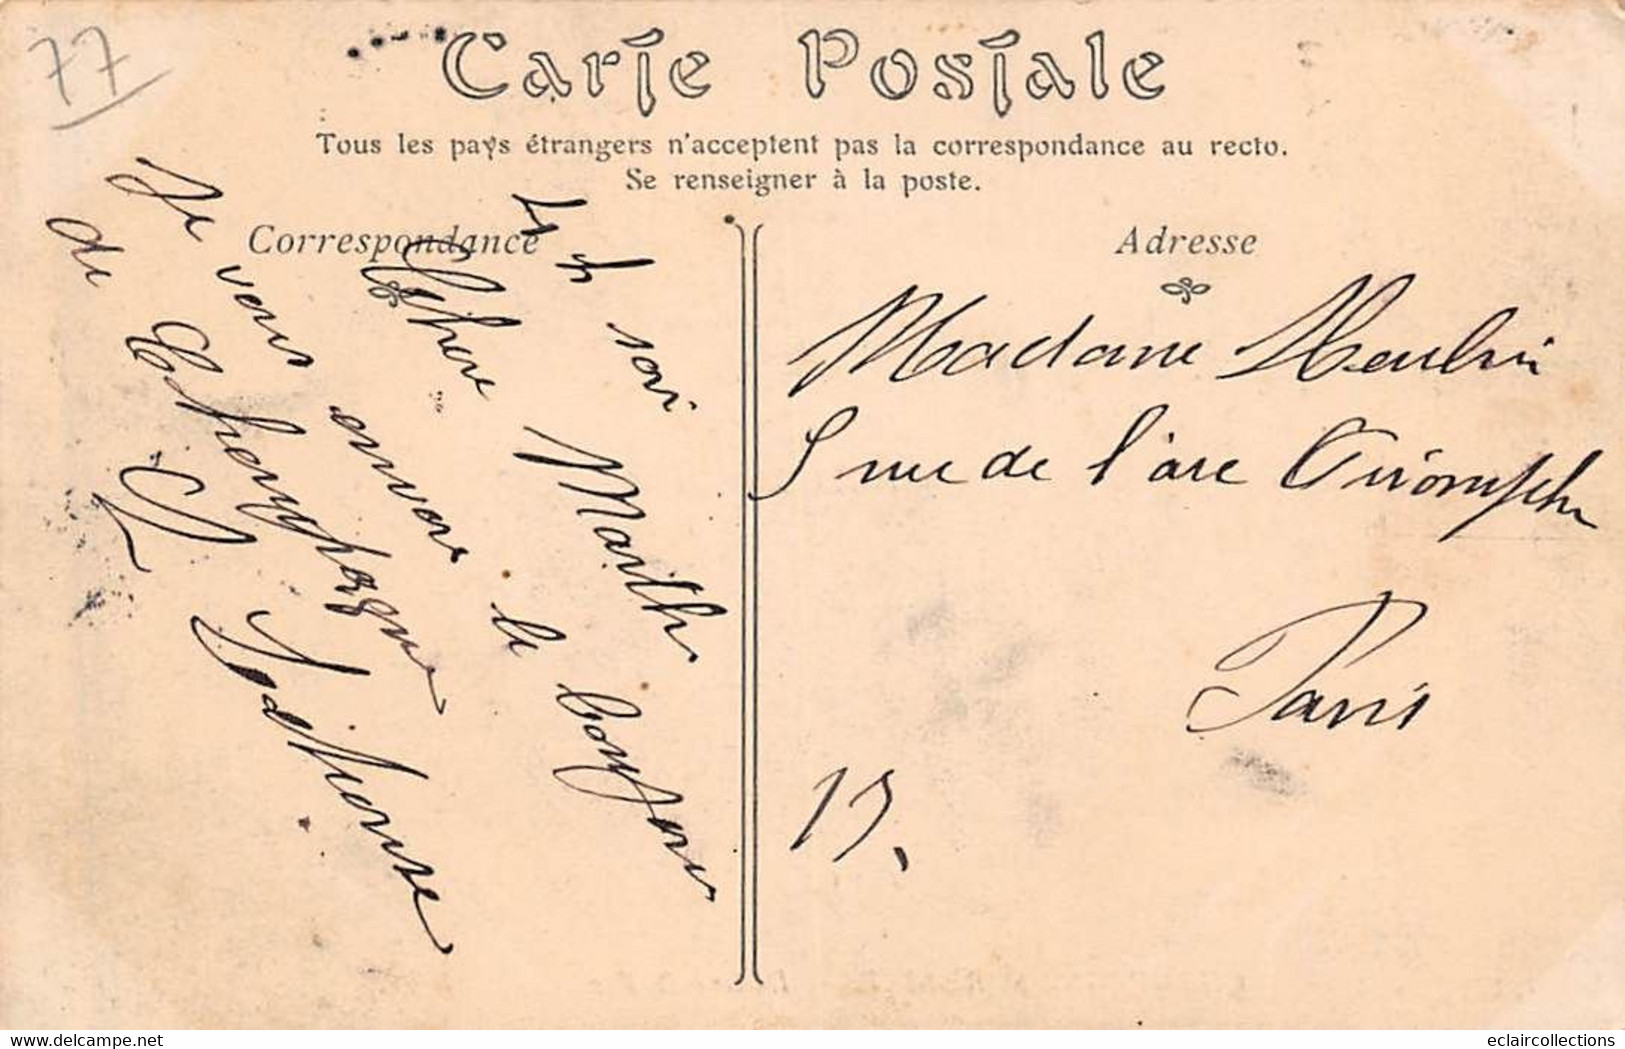 77
Carte Postale
Tous les pays étrangers n'acceptent pas la correspondance au recto.
Se renseigner à la poste.
Correspondance
Adresse
4 h soir
Chere Marthe
Je vous envoie le bonjour
de
Madame Moulin
5 rue de l'arc Triomphe
Paris
15.
eclaircollections